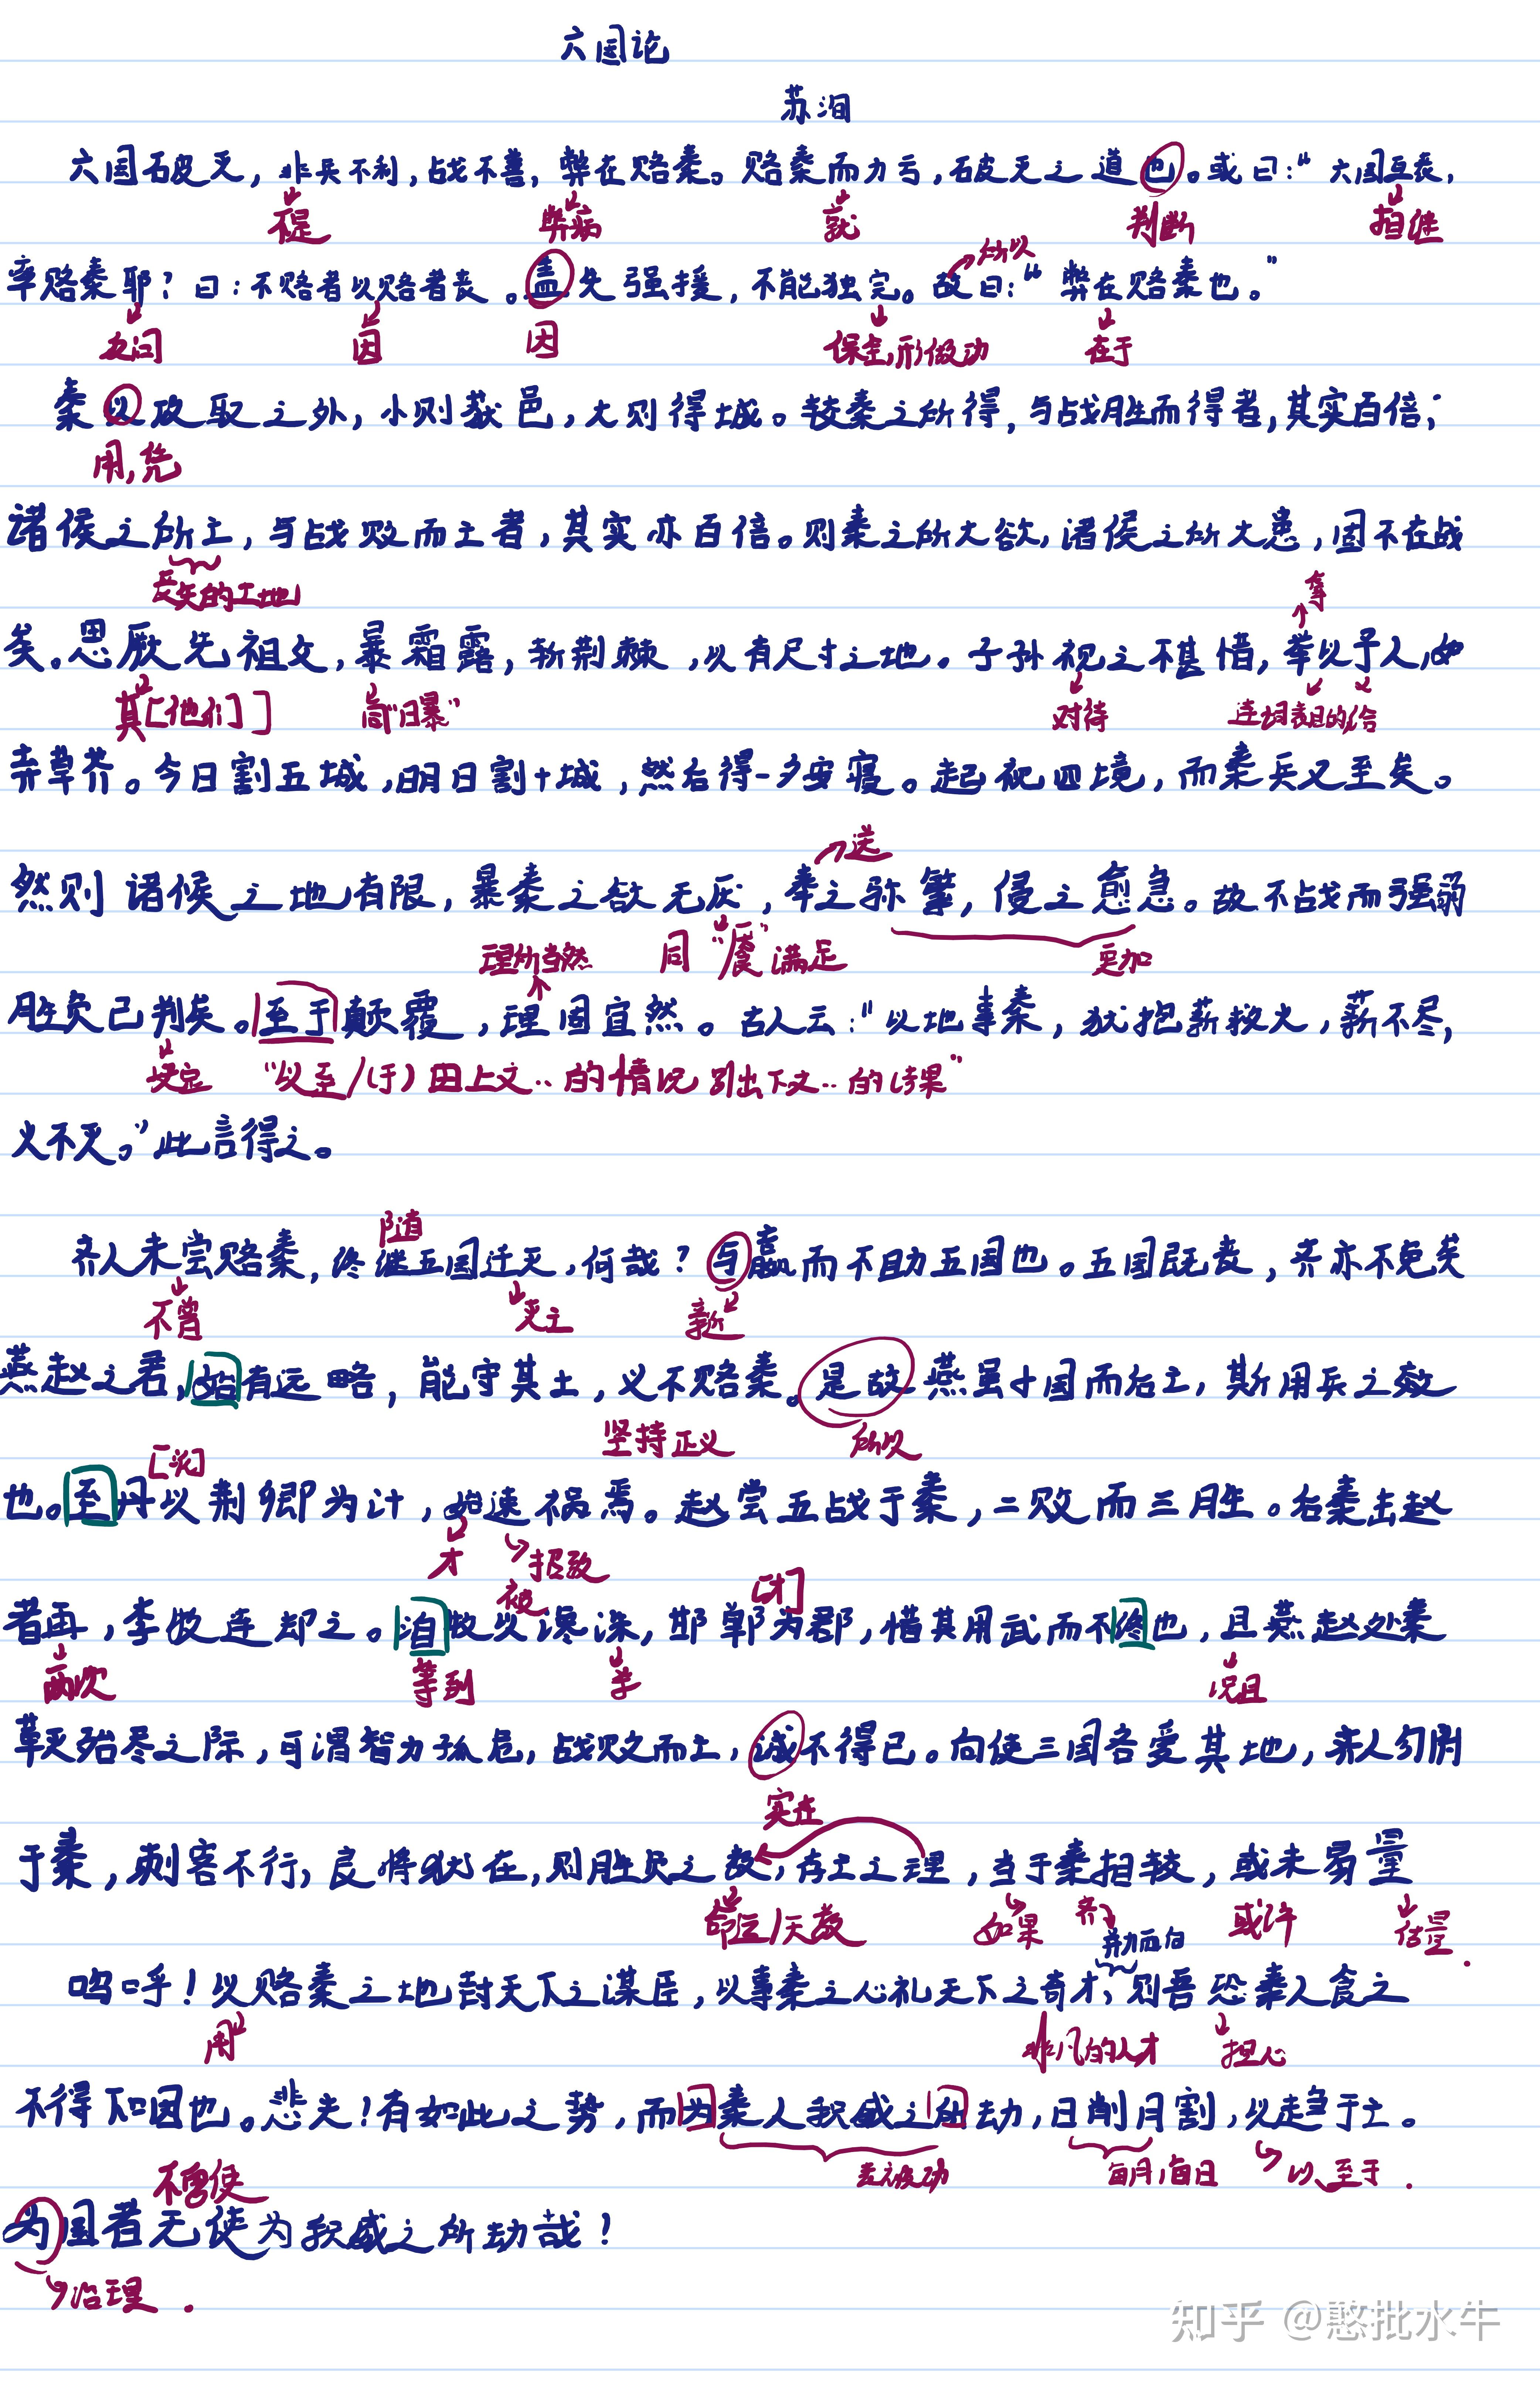 六国论
苏洵
六国破灭，非兵不利，战不善，弊在赂秦。赂秦而力亏，破灭之道也。或曰：“六国互丧，
不是 弊病 就 判断 相继
所以
率赂秦耶？曰：不赂者以赂者丧。盖失强援，不能独完。故曰：“弊在赂秦也。”
反问 因 因 保全，形做动 在于
秦以攻取之外，小则获邑，大则得城。较秦之所得，与战胜而得者，其实百倍；
用，凭
诸侯之所亡，与战败而亡者，其实亦百倍。则秦之所大欲，诸侯之所大患，固不在战
丧失的土地
拿
矣。思厥先祖父，暴霜露，斩荆棘，以有尺寸之地。子孙视之不甚惜，举以予人，如
其[他们] 同“日暴” 对待 连词表目的 给
弃草芥。今日割五城，明日割十城，然后得一夕安寝。起视四境，而秦兵又至矣。
送
然则诸候之地有限，暴秦之欲无厌，奉之弥繁，侵之愈急。故不战而强弱
理所当然 同“餍”满足 更加
胜负已判矣。至于颠覆，理固宜然。古人云：“以地事秦，犹抱薪救火，薪不尽，
决定 “以至/(于)由上文..的情况引出下文..的结果”
火不灭。”此言得之。
随
齐人未尝赂秦，终继五国迁灭，何哉？与嬴而不助五国也。五国既丧，齐亦不免矣
不曾 灭亡 亲近
燕赵之君，始有远略，能守其土，义不赂秦。是故燕虽小国而后亡，斯用兵之效
坚持正义 所以
也。至丹以荆卿为计，始速祸焉。赵尝五战于秦，二败而三胜。后秦击赵
才 招致
被
者再，李牧连却之。洎牧以谗诛，邯郸为郡，惜其用武而不终也，且燕赵处秦
两次 等到 况且
革灭殆尽之际，可谓智力孤危，战败而亡，诚不得已。向使三国各爱其地，齐人勿附
实在
于秦，刺客不行，良将犹在，则胜负之数，存亡之理，当于秦相较，或未易量
命运/天数 如果 或许 估量.
并力西向
呜呼！以赂秦之地封天下之谋臣，以事秦之心礼天下之奇才，则吾恐秦人食之
用 非凡的人才 担心
不得下咽也。悲夫！有如此之势，而为秦人积威之所劫，日削月割，以趋于亡。
表被动 每月，每日 以至于.
不要使
为国者无使为积威之所劫哉！
治理.
知乎 @憨批水牛